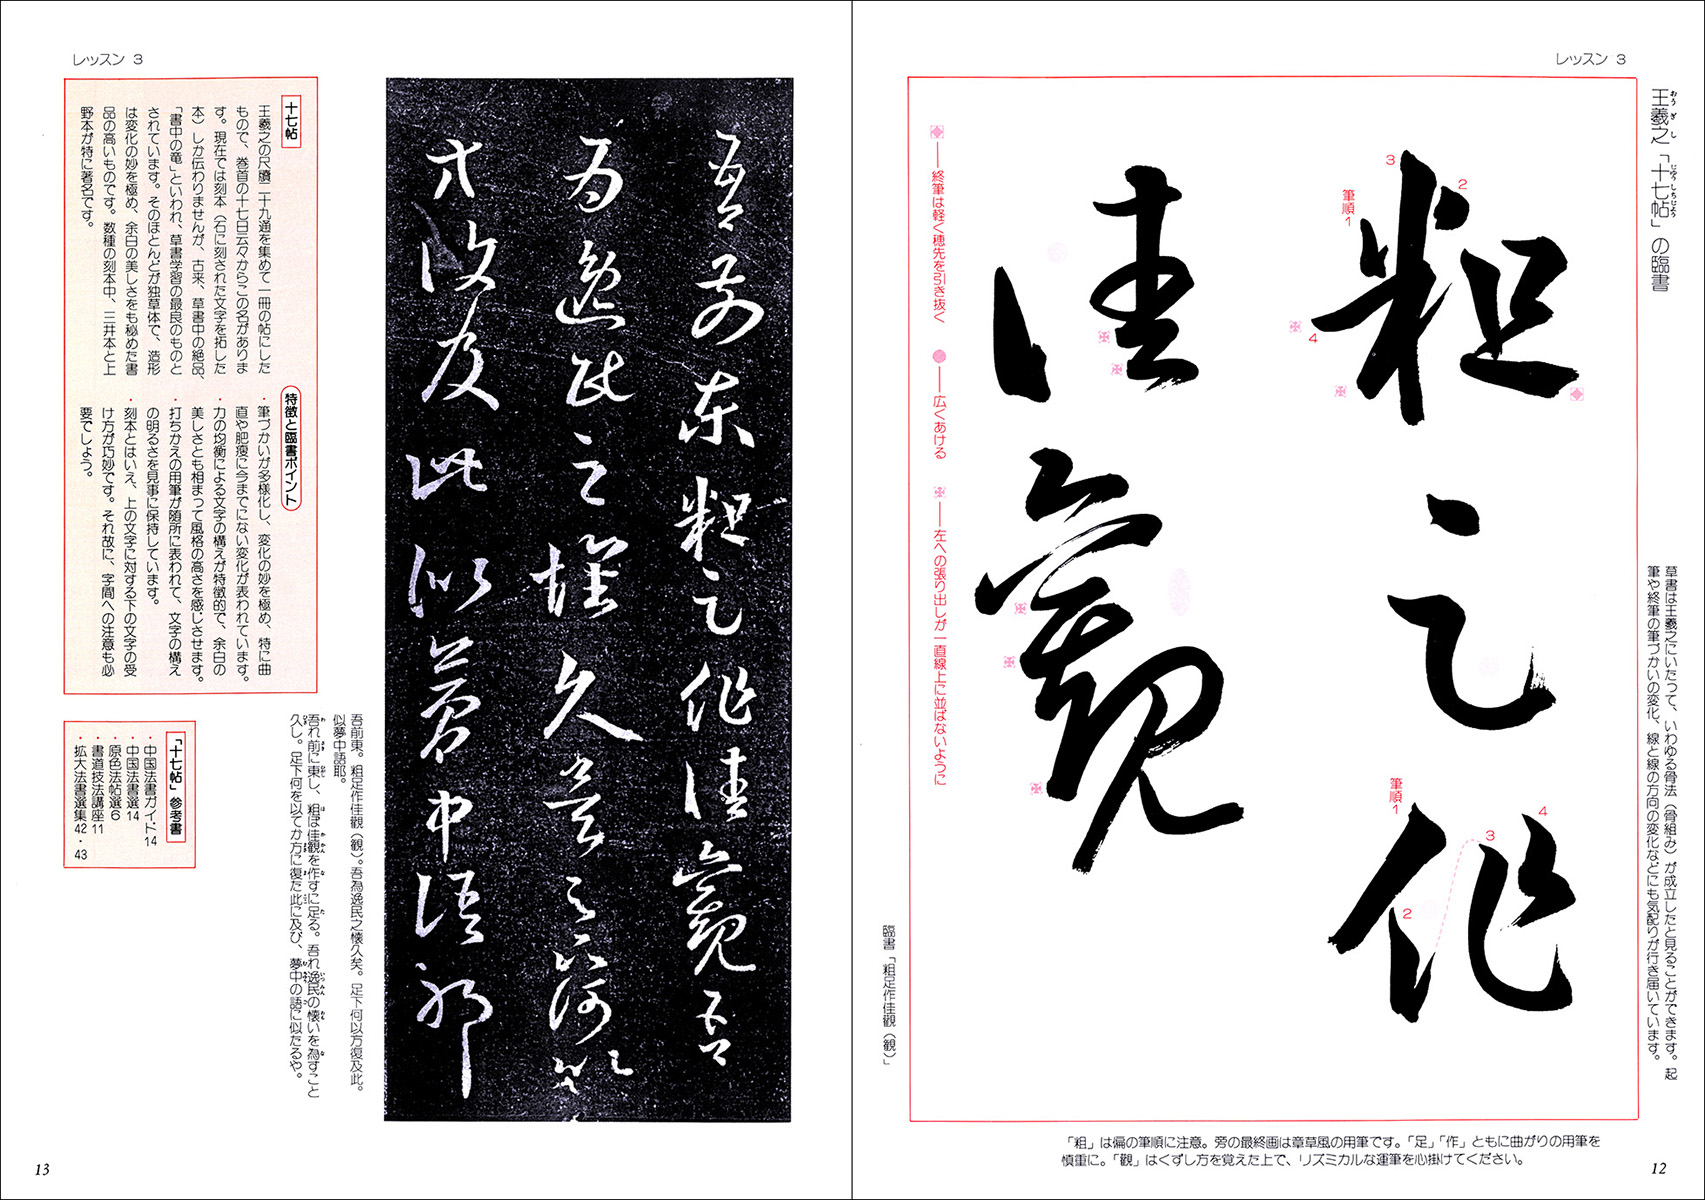 レッスン 3
王羲之「十七帖」の臨書
おうぎし
じゅうしちじょう
草書は王羲之にいたって、いわゆる骨法（骨組み）が成立したと見ることができます。起
筆や終筆の筆づかいの変化、線と線の方向の変化などにも気配りが行き届いています。
粗足作
佳觀
筆順1
2
3
4
筆順1
2
3
4
終筆は軽く穂先を引き抜く
広くあける
左への張り出しが一直線上に並ばないように
臨書「粗足作佳觀（観）」
「粗」は偏の筆順に注意。旁の最終画は章草風の用筆です。「足」「作」ともに曲がりの用筆を
慎重に。「觀」はくずし方を覚えた上で、リズミカルな運筆を心掛けてください。
12
レッスン 3
吾前東粗足作佳觀吾
為逸民之懐久矣足下何以
方復及此似夢中語耶
吾前東。粗足作佳觀（観）。吾為逸民之懐久矣。足下何以方復及此。
似夢中語耶。
吾れ前に東し、粗ぼ佳観を作すに足る。吾れ逸民の懐いを為すこと
久し。足下何を以てか方に復た此に及び、夢中の語に似たるや。
十七帖
王羲之の尺牘二十九通を集めて一冊の帖にした
もので、巻首の十七日云々からこの名がありま
す。現在では刻本（石に刻された文字を拓した
本）しか伝わりませんが、古来、草書中の絶品、
「書中の竜」といわれ、草書学習の最良のものと
されています。そのほとんどが独草体で、造形
は変化の妙を極め、余白の美しさをも秘めた書
品の高いものです。数種の刻本中、三井本と上
野本が特に著名です。
特徴と臨書ポイント
・筆づかいが多様化し、変化の妙を極め、特に曲
直や肥痩に今までにない変化が表われています。
・力の均衡による文字の構えが特徴的で、余白の
美しさとも相まって風格の高さを感じさせます。
・打ちかえの用筆が随所に表われて、文字の構え
の明るさを見事に保持しています。
・刻本とはいえ、上の文字に対する下の文字の受
け方が巧妙です。それ故に、字間への注意も必
要でしょう。
「十七帖」参考書
・中国法書ガイド・14
・中国法書選14
・原色法帖選6
・書道技法講座11
・拡大法書選集42・43
13